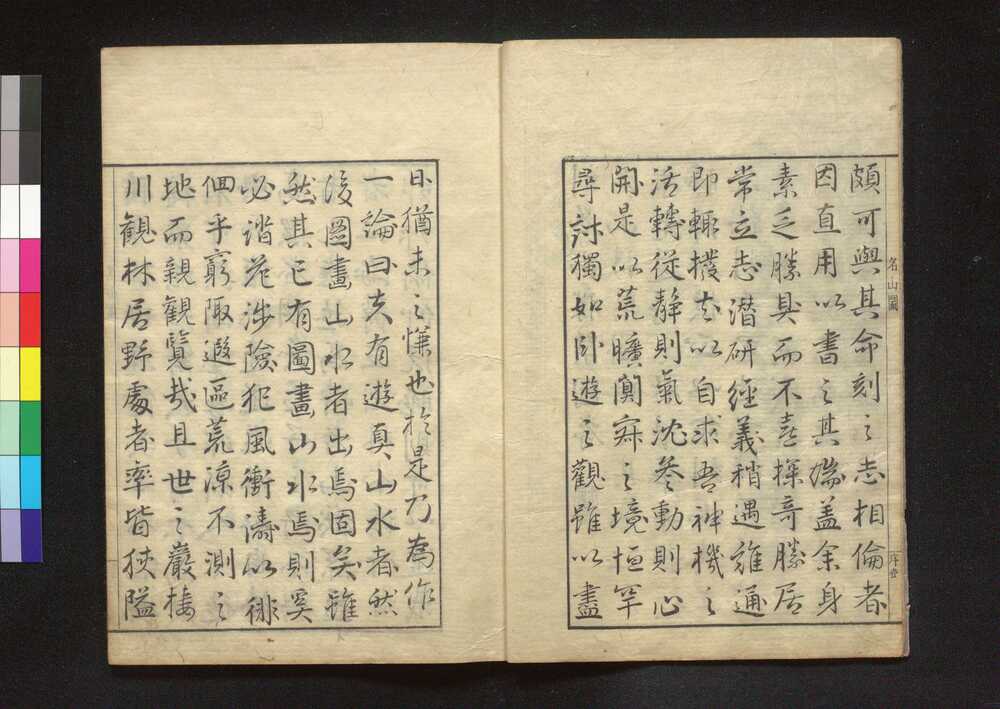 頗可與其命刻之志相倫者
因直用以書之其端盖余身
素乏勝具而不喜探奇勝居
常立志潜研經義稍遇難通
即輙撥去以自求吾神機之
活轉從静則氣沈叅動則心
開是以荒曠闃寂之境恒罕
尋討獨如卧遊之觀雖以盡
名山圖
序
日猶未之慊也於是乃為作
一論曰夫有遊真山水者然
後圖畫山水者出焉固矣雖
然其已有圖畫山水焉則奚
必踏危涉險犯風衝濤以徘
徊乎窮陬遐區荒凉不測之
地而親觀覽哉且世之巖棲
川觀林居野處者率皆狹隘